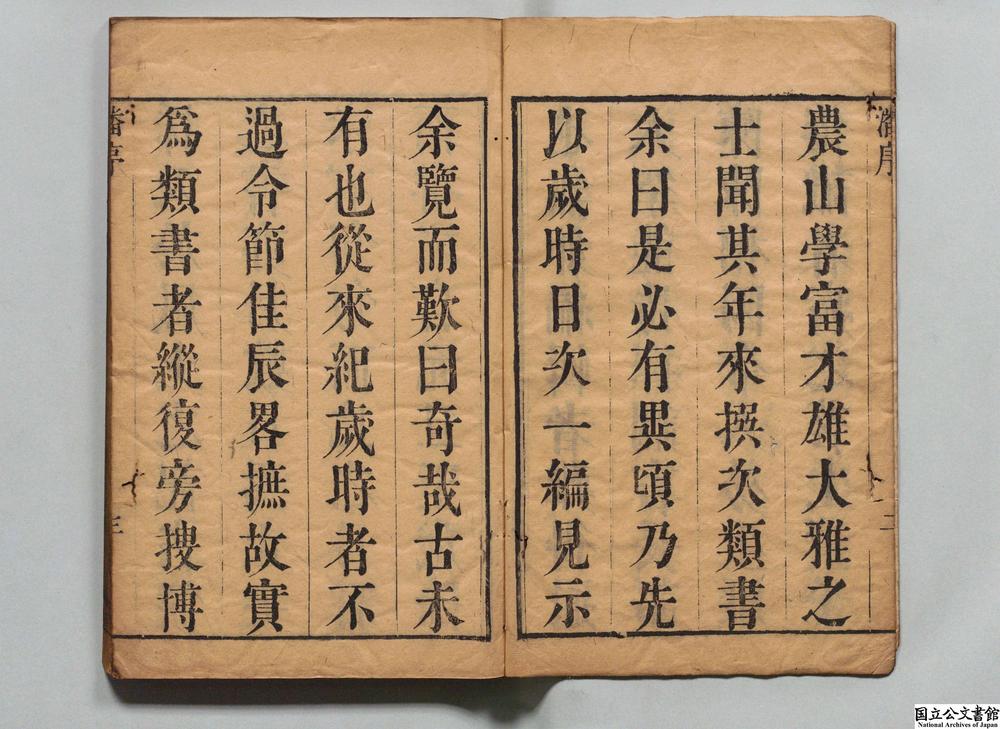 潘序
農山學富才雄大雅之
士聞其年來撰次類書
余曰是必有異頃乃先
以歲時日次一編見示
二
余覽而歎曰奇哉古未
有也從來紀歲時者不
過令節佳辰畧摭故實
爲類書者縱復旁搜博
潘序
三
国立公文書館
National Archives of Japan